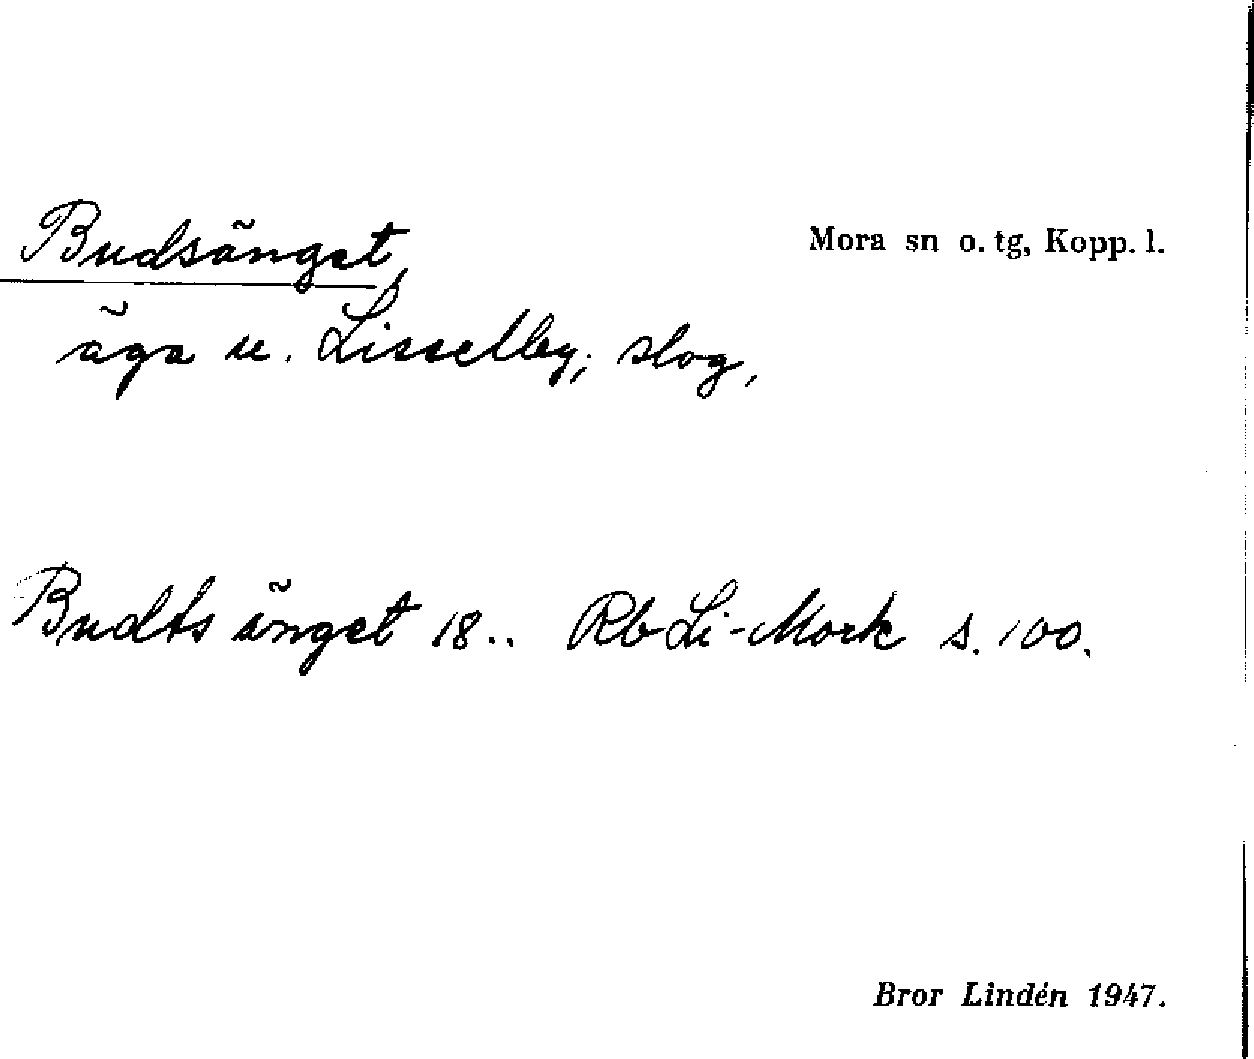 Budsänget, Mora sn o. tg, Kopp. l.
äga u. Lisselby; slog,
Budts änget 18.. Rb Li-Mork s. 100.
Bror Lindén 1947.